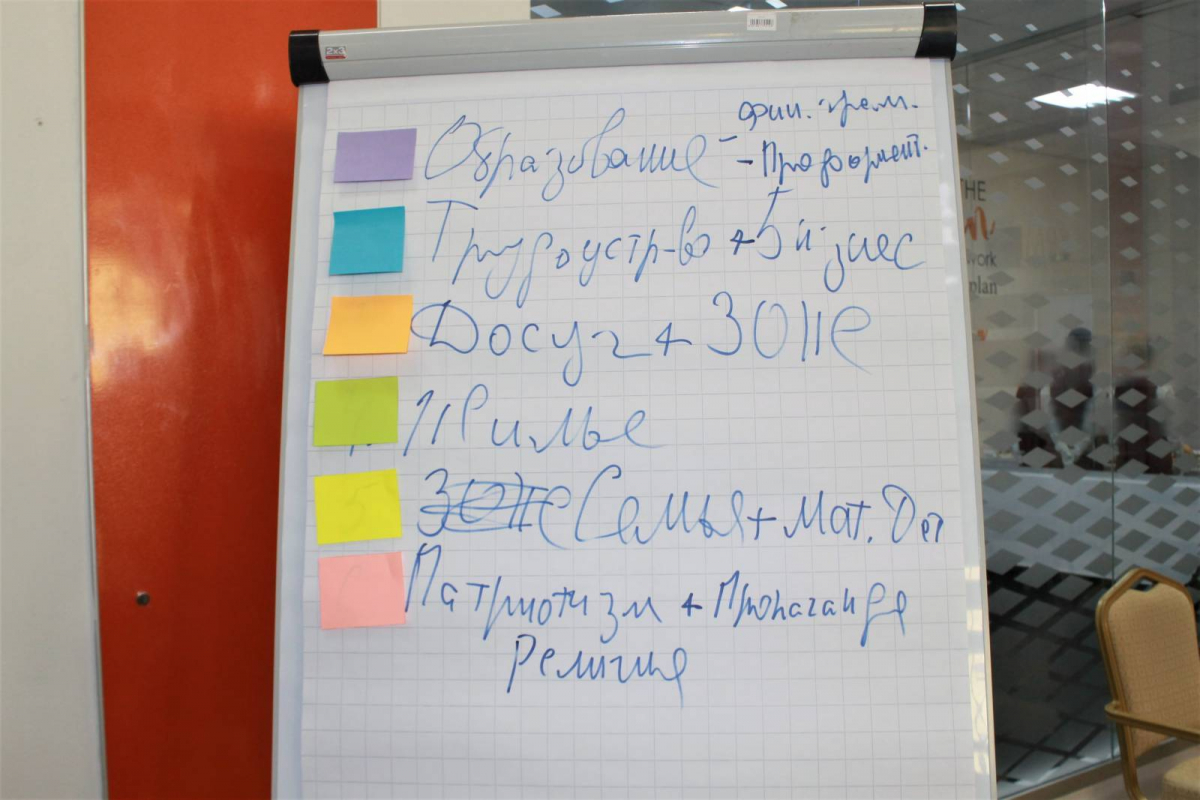 Образование - фин. грам.
- Профориент.
Трудоустр-во + Бизнес
Досуг + ЗОЖ
Жилье
ЗОЖ Семья + Мат. Дет
Патриотизм + Пропаганда
Религия
THE
work
plan